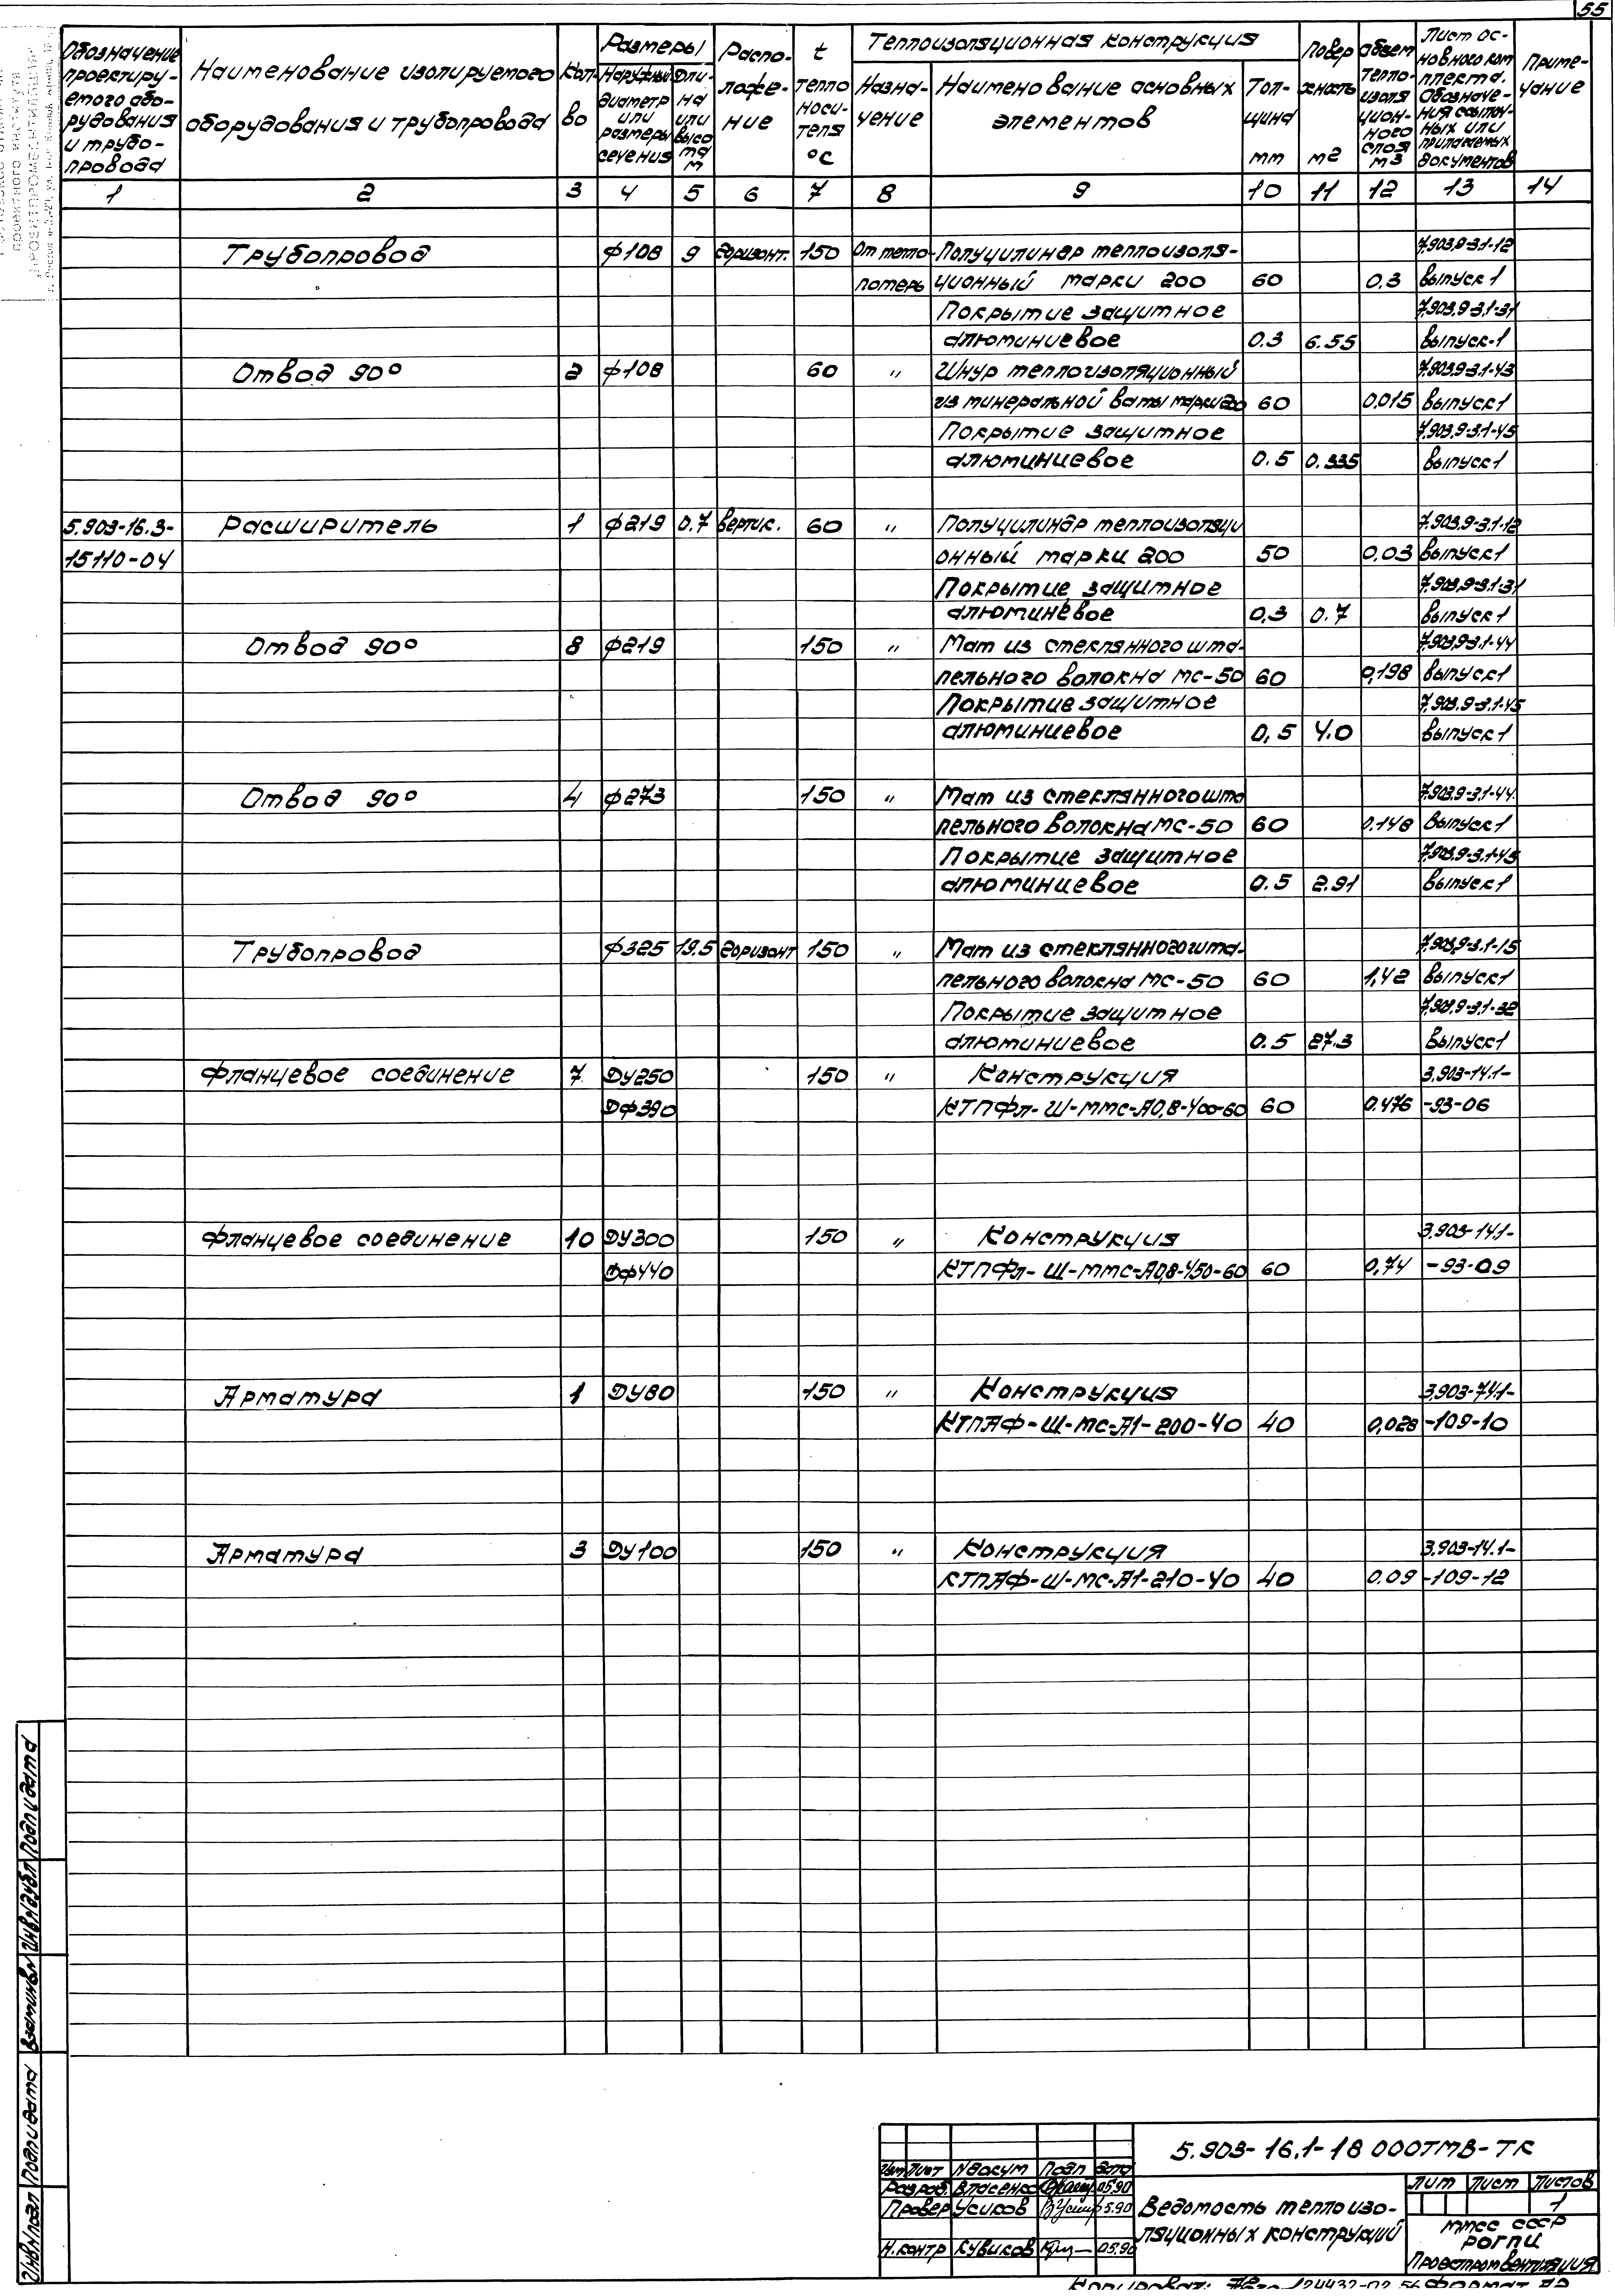 55
Обозначение проектируемого оборудования и трубопровода
Наименование изолируемого оборудования и трубопровода
Кол-во
Размеры
Наружный диаметр или размеры сечения
Длина или высота м
Расположение
t теплоносителя °С
Теплоизоляционная конструкция
Назначение
Наименование основных элементов
Толщина мм
Поверхность м2
Объем теплоизоляционного слоя м3
Лист основного комплекта. Обозначения ссылочных или прилагаемых документов
Примечание
1 2 3 4 5 6 7 8 9 10 11 12 13 14
Трубопровод ф108 9 горизонт. 150 От тепло- Полуцилиндр теплоизоля- 7.903.9-3.1-12
потерь ционный марки 200 60 0.3 выпуск 1
Покрытие защитное 7.903.9-3.1-31
алюминиевое 0.3 6.55 выпуск-1
Отвод 90° 2 ф108 60 " Шнур теплоизоляционный 7.903.9-3.1-43
из минеральной ваты марки 200 60 0.015 выпуск 1
Покрытие защитное 7.903.9-3.1-45
алюминиевое 0.5 0.335 выпуск 1
5.903-16.3- Расширитель 1 ф219 0.7 вертик. 60 " Полуцилиндр теплоизоляци 7.903.9-3.1-12
15110-04 онный марки 200 50 0.03 выпуск 1
Покрытие защитное 7.903.9-3.1-31
алюминевое 0,3 0.7 выпуск 1
Отвод 90° 8 ф219 150 " Мат из стеклянного шта- 7.903.9-3.1-44
пельного волокна МС-50 60 0,198 выпуск 1
Покрытие защитное 7.903.9-3.1-45
алюминиевое 0,5 4.0 выпуск 1
Отвод 90° 4 ф273 150 " Мат из стеклянного шта 7.903.9-3.1-44
пельного волокна МС-50 60 0.148 выпуск 1
Покрытие защитное 7.903.9-3.1-45
алюминиевое 0.5 2.91 выпуск 1
Трубопровод ф325 19.5 горизонт 150 " Мат из стеклянного шта- 7.903.9-3.1-15
пельного волокна МС-50 60 1,42 выпуск 1
Покрытие защитное 7.903.9-3.1-32
алюминиевое 0.5 27.3 выпуск 1
Фланцевое соединение 7 ДУ250 150 " Конструкция 3.903-14.1-
Дф390 КТПФл-Ш-ММС-А0,8-400-60 60 0.476 -93-06
Фланцевое соединение 10 ДУ300 150 " Конструкция 3.903-14.1-
Дф440 КТПФл-Ш-ММС-А0,8-450-60 60 0,74 -93-09
Арматура 1 ДУ80 150 " Конструкция 3.903-14.1-
КТПАФ-Ш-МС-А1-200-40 40 0,028 -109-10
Арматура 3 ДУ100 150 " Конструкция 3.903-14.1-
КТПАФ-Ш-МС-А1-210-40 40 0.09 -109-12
Инв№подл Подп и дата Взам инв№ Инв№дубл Подп и дата
5.903-16.1-18 000ТМВ-ТК
Изм Лист №докум Подп Дата
Разраб. Власенко 05.90
Провер Усиков 5.90
Н.контр Кувиков 05.90
Ведомость теплоизо-
ляционных конструкций
Лит Лист Листов
1
ММСС СССР
РОГПИ
Проектпромвентиляция
Копировал: 24432-02 56 Формат А2